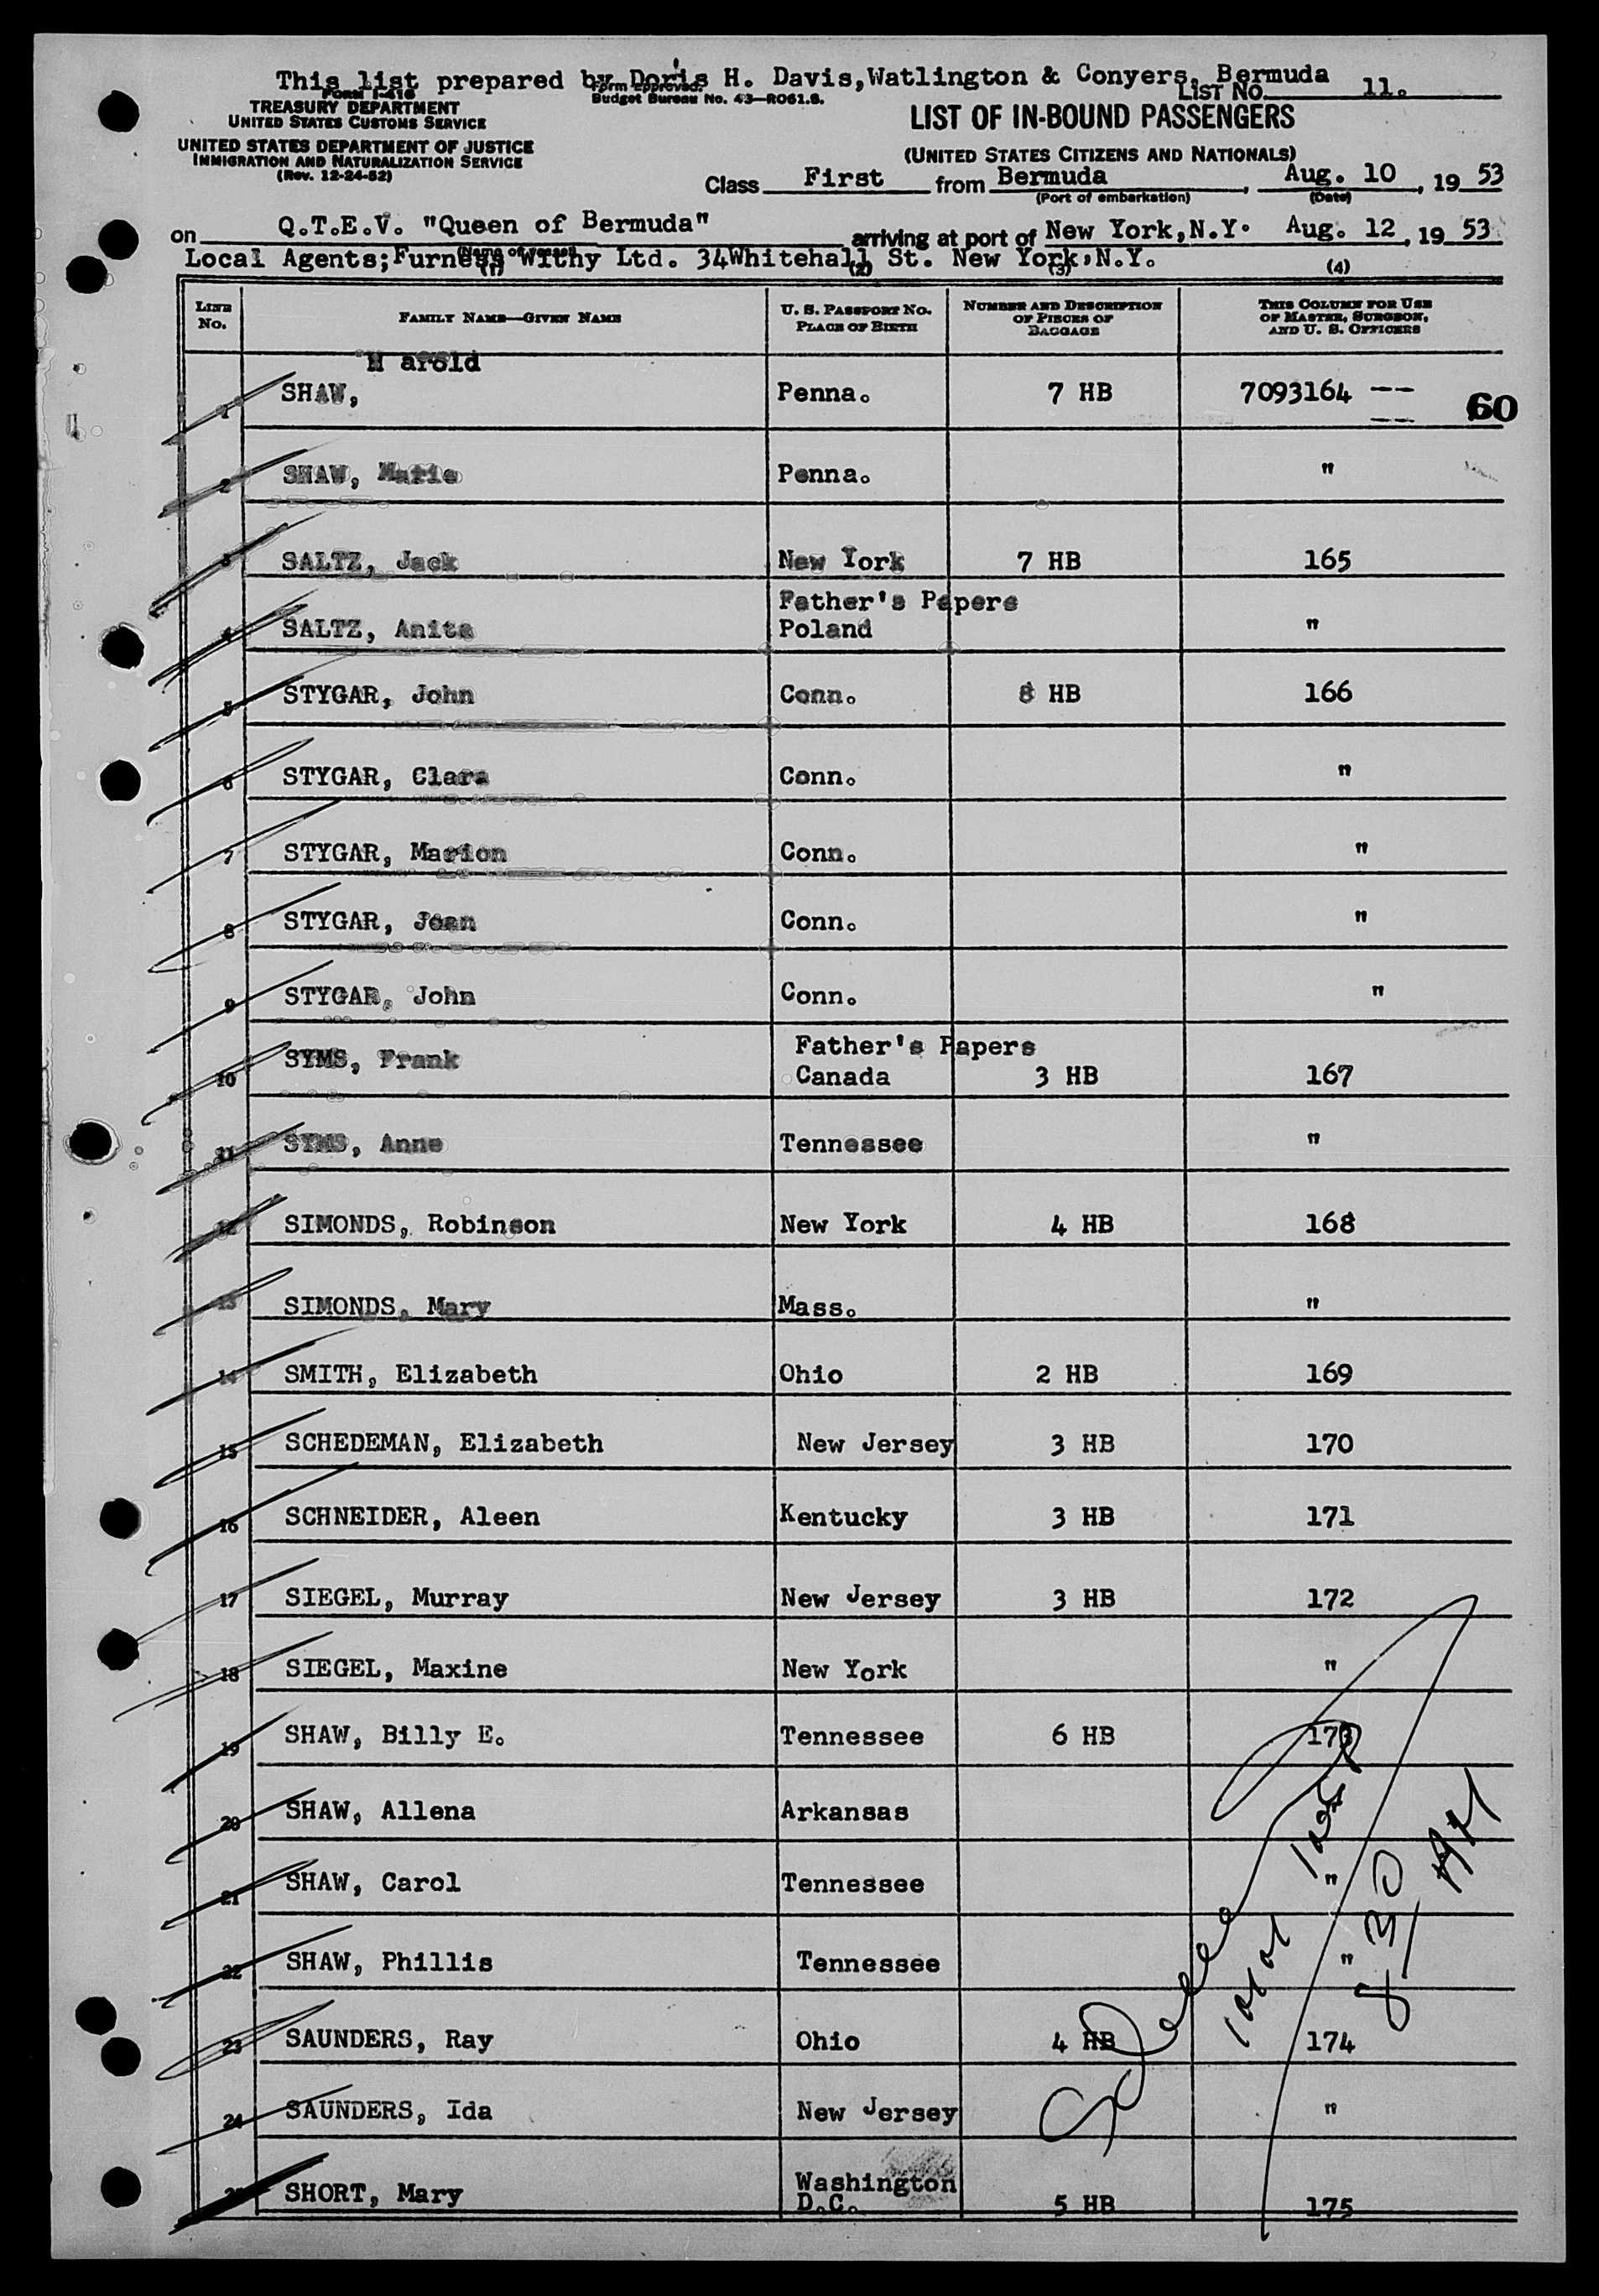 This list prepared by Doris H. Davis,Watlington & Conyers, Bermuda
FORM I-418
Form approved.
Budget Bureau No. 43—R061.8.
LIST NO. 11.
TREASURY DEPARTMENT
UNITED STATES CUSTOMS SERVICE
UNITED STATES DEPARTMENT OF JUSTICE
IMMIGRATION AND NATURALIZATION SERVICE
(Rev. 12-24-52)
LIST OF IN-BOUND PASSENGERS
(UNITED STATES CITIZENS AND NATIONALS)
Class First from Bermuda, Aug. 10, 19 53
(Port of embarkation) (Date)
on Q.T.E.V. "Queen of Bermuda" arriving at port of New York,N.Y. Aug. 12, 19 53
(Name of vessel)
Local Agents;Furness Withy Ltd. 34Whitehall St. New York,N.Y.
(1) (2) (3) (4)
LINE No. FAMILY NAME—GIVEN NAME U. S. PASSPORT NO. PLACE OF BIRTH NUMBER AND DESCRIPTION OF PIECES OF BAGGAGE THIS COLUMN FOR USE OF MASTER, SURGEON, AND U. S. OFFICERS
Harold
1 SHAW, Penna. 7 HB 7093164 -- -- 60
2 SHAW, Marie Penna. "
3 SALTZ, Jack New York 7 HB 165
Father's Papers
4 SALTZ, Anita Poland "
5 STYGAR, John Conn. 8 HB 166
6 STYGAR, Clara Conn. "
7 STYGAR, Marion Conn. "
8 STYGAR, Joan Conn. "
9 STYGAR, John Conn. "
Father's Papers
10 SYMS, Frank Canada 3 HB 167
11 SYMS, Anne Tennessee "
12 SIMONDS, Robinson New York 4 HB 168
13 SIMONDS, Mary Mass. "
14 SMITH, Elizabeth Ohio 2 HB 169
15 SCHEDEMAN, Elizabeth New Jersey 3 HB 170
16 SCHNEIDER, Aleen Kentucky 3 HB 171
17 SIEGEL, Murray New Jersey 3 HB 172
18 SIEGEL, Maxine New York "
19 SHAW, Billy E. Tennessee 6 HB 173
20 SHAW, Allena Arkansas
21 SHAW, Carol Tennessee "
22 SHAW, Phillis Tennessee "
23 SAUNDERS, Ray Ohio 4 HB 174
24 SAUNDERS, Ida New Jersey "
25 SHORT, Mary Washington D.C. 5 HB 175